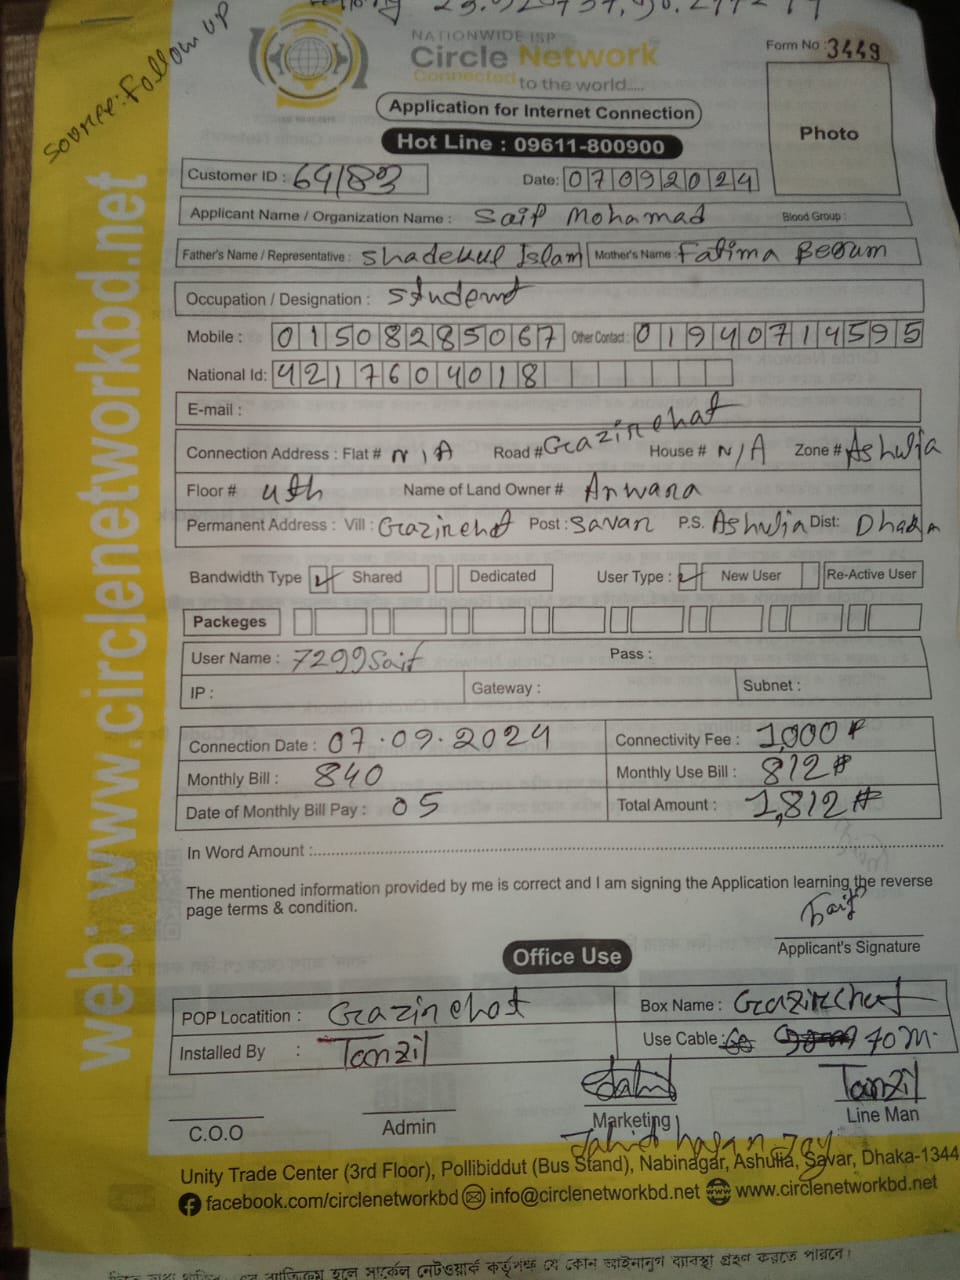 Source: Follow up
NATIONWIDE ISP
Circle Network
Connected to the world.....
Form No : 3449
Application for Internet Connection
Hot Line : 09611-800900
Photo
Customer ID : 641803
Date: 07092024
Applicant Name / Organization Name : Saif Mohamad Blood Group :
Father's Name / Representative : Shadekul Islam Mother's Name : Fatima Begum
Occupation / Designation : Student
Mobile : 01508285067 Other Contact : 01940714595
National Id: 4217604018
E-mail :
Connection Address : Flat # N/A Road # Gazirchat House # N/A Zone # Ashulia
Floor # 4th Name of Land Owner # Anwara
Permanent Address : Vill : Gazirchat Post : Savar P.S. Ashulia Dist: Dhaka
Bandwidth Type Shared Dedicated User Type : New User Re-Active User
Packeges
User Name : 7299Saif Pass :
IP : Gateway : Subnet :
Connection Date : 07.09.2024 Connectivity Fee : 1,000#
Monthly Bill : 840 Monthly Use Bill : 812#
Date of Monthly Bill Pay : 05 Total Amount : 1,812#
In Word Amount :
The mentioned information provided by me is correct and I am signing the Application learning the reverse
page terms & condition.
Saif
Applicant's Signature
Office Use
POP Locatition : Gazirchat Box Name : Gazirchat
Installed By : Tanzil Use Cable : 70m.
Tanzil
C.O.O Admin Marketing Line Man
Jahid hasan Joy
Unity Trade Center (3rd Floor), Pollibiddut (Bus Stand), Nabinagar, Ashulia, Savar, Dhaka-1344
facebook.com/circlenetworkbd info@circlenetworkbd.net www.circlenetworkbd.net
web: www.circlenetworkbd.net
সার্কেল নেটওয়ার্ক কর্তৃপক্ষ যে কোন আইনানুগ ব্যাবস্থা গ্রহন করতে পারবে।